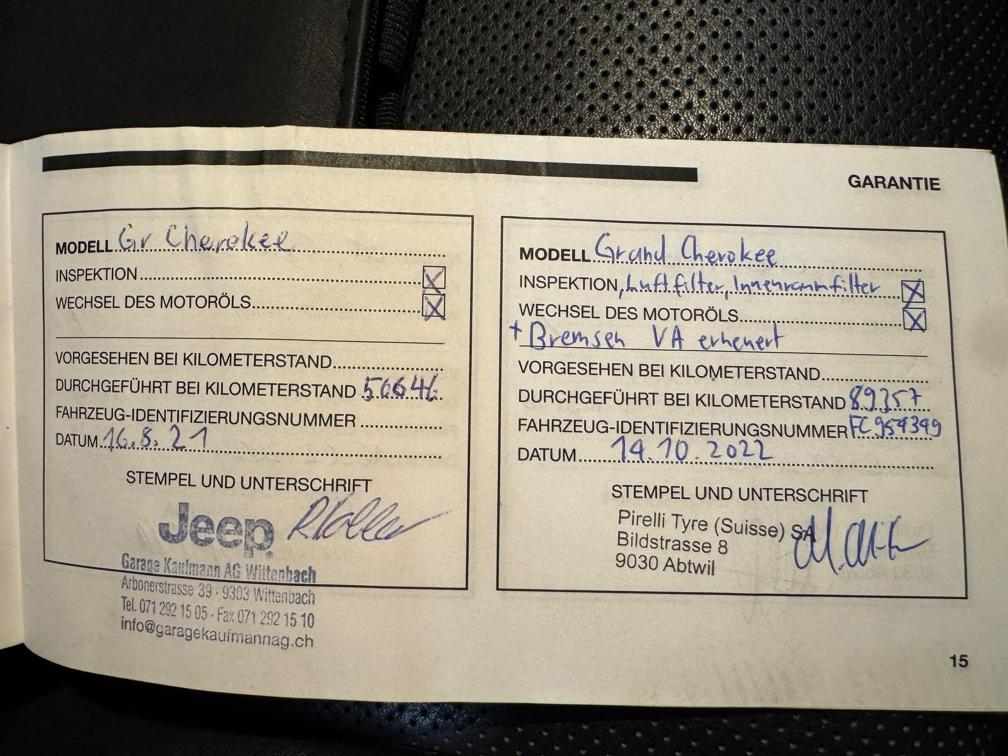 GARANTIE
MODELL Gr Cherokee
INSPEKTION ☒
WECHSEL DES MOTORÖLS ☒
VORGESEHEN BEI KILOMETERSTAND
DURCHGEFÜHRT BEI KILOMETERSTAND 56646
FAHRZEUG-IDENTIFIZIERUNGSNUMMER
DATUM 16.8.21
STEMPEL UND UNTERSCHRIFT
Jeep
Garage Kaufmann AG Wittenbach
Arbonerstrasse 39 - 9303 Wittenbach
Tel. 071 292 15 05 - Fax 071 292 15 10
info@garagekaufmannag.ch
MODELL Grand Cherokee
INSPEKTION, Luftfilter, Innenraumfilter ☒
WECHSEL DES MOTORÖLS ☒
+ Bremsen VA erneuert
VORGESEHEN BEI KILOMETERSTAND
DURCHGEFÜHRT BEI KILOMETERSTAND 89357
FAHRZEUG-IDENTIFIZIERUNGSNUMMER FC954349
DATUM 14.10.2022
STEMPEL UND UNTERSCHRIFT
Pirelli Tyre (Suisse) SA
Bildstrasse 8
9030 Abtwil
15